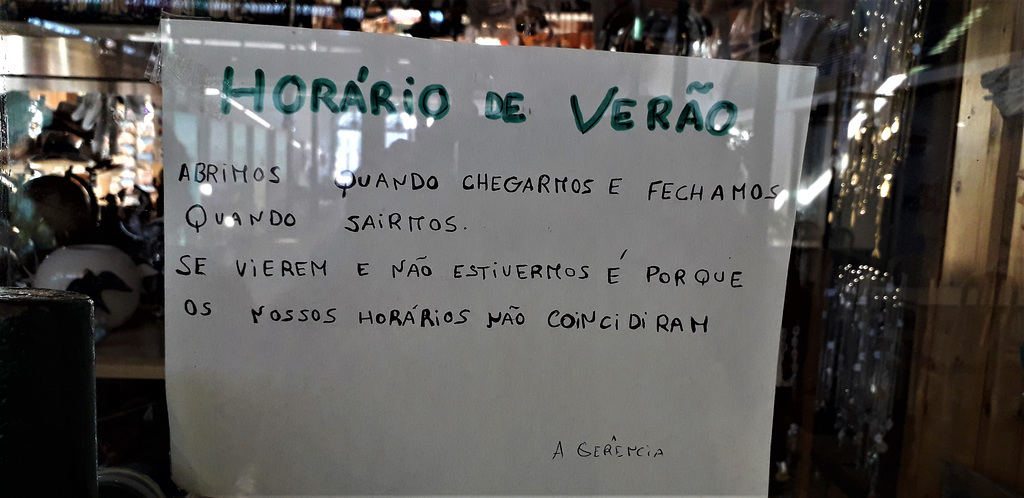 HORÁRIO DE VERÃO
ABRIMOS QUANDO CHEGARMOS E FECHAMOS
QUANDO SAIRMOS.
SE VIEREM E NÃO ESTIVERMOS É PORQUE
OS NOSSOS HORÁRIOS NÃO COINCIDIRAM
A GERÊNCIA